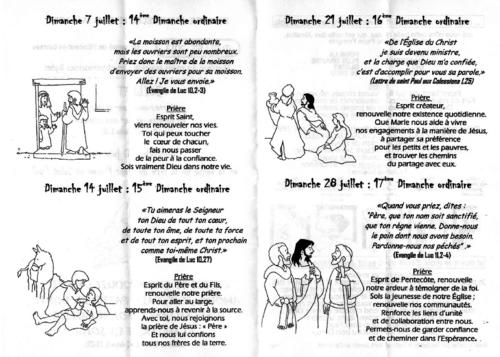 Dimanche 7 juillet : 14ème Dimanche ordinaire
«La moisson est abondante,
mais les ouvriers sont peu nombreux.
Priez donc le maître de la moisson
d'envoyer des ouvriers pour sa moisson.
Allez ! Je vous envoie.»
(Évangile de Luc 10,2-3)
Prière
Esprit Saint,
viens renouveler nos vies.
Toi qui peux toucher
le cœur de chacun,
fais nous passer
de la peur à la confiance.
Sois vraiment Dieu dans notre vie.
Dimanche 14 juillet : 15ème Dimanche ordinaire
«Tu aimeras le Seigneur
ton Dieu de tout ton cœur,
de toute ton âme, de toute ta force
et de tout ton esprit, et ton prochain
comme toi-même Christ.»
(Évangile de Luc 10,27)
Prière
Esprit du Père et du Fils,
renouvelle notre prière.
Pour aller au large,
apprends-nous à revenir à la source.
Avec toi, nous rejoignons
la prière de Jésus : « Père »
Et nous lui confions
tous nos frères de la terre.
Dimanche 21 juillet : 16ème Dimanche ordinaire
«De l'Église du Christ
je suis devenu ministre,
et la charge que Dieu m'a confiée,
c'est d'accomplir pour vous sa parole.»
(Lettre de saint Paul aux Colossiens 1,25)
Prière
Esprit créateur,
renouvelle notre existence quotidienne.
Que Marie nous aide à vivre
nos engagements à la manière de Jésus,
à partager sa préférence
pour les petits et les pauvres,
et trouver les chemins
du partage avec eux.
Dimanche 28 juillet : 17ème Dimanche ordinaire
«Quand vous priez, dites :
"Père, que ton nom soit sanctifié,
que ton règne vienne. Donne-nous
le pain dont nous avons besoin.
Pardonne-nous nos péchés" .»
(Évangile de Luc 11,2-4)
Prière
Esprit de Pentecôte, renouvelle
notre ardeur à témoigner de la foi.
Sois la jeunesse de notre Église ;
renouvelle nos communautés.
Renforce les liens d'unité
et de collaboration entre nous.
Permets-nous de garder confiance
et de cheminer dans l'Espérance.